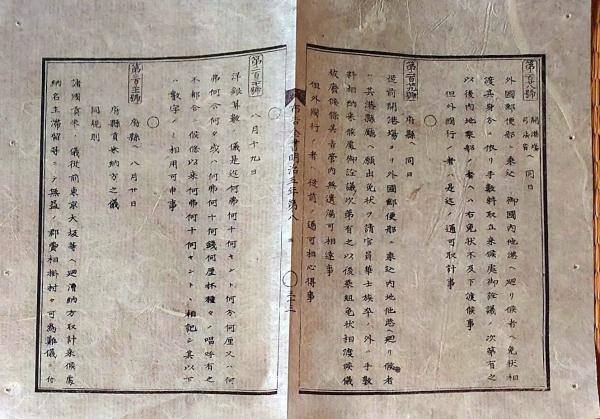 第二百十八號
開港場
司法省 へ 同日
外國郵便船ニ乗込 御國内他港ヘ廻リ候者ヘ免状相
渡其身分ニ依リ手數料取立来候處御詮議ノ次第有之
以後内地乗船ノ者ヘハ右免状不及下渡候事
但外國行ノ者ハ是迄ノ通可取計事
第二百十九號
○
府縣ヘ 同日
従前開港場ヨリ外國郵便船ニ乗込内地他港ヘ廻リ候者
ハ其港縣廳ヘ願出免状ヲ請官員華士族卒ノ外ハ手數
料相納来候處御詮議次第有之以後乗組免状相渡候儀
被廢候條其音管内無遺漏可相達事
但外國行ノ者ハ従前ノ通可相心得事
布告全書明治五年第八
○
八月十九日
洋銀算數ノ儀是迄何弗何十何セント何分何厘又ハ何
弗何合何タ或ハ何弗何十何錢何厘杯種々ノ唱呼有之
不都合ニ候條以来何弗何十何セントト相記シ其以下
ハ數字ノミ相用可申事
○
府縣ヘ 八月廿日
府縣貢米納方之儀
同規則
諸國貢米ノ儀従前東京大坂等ヘ廻漕納方取計来候處
納名主滞留等ニテ無益ノ郡費相掛村々可為難儀ニ付